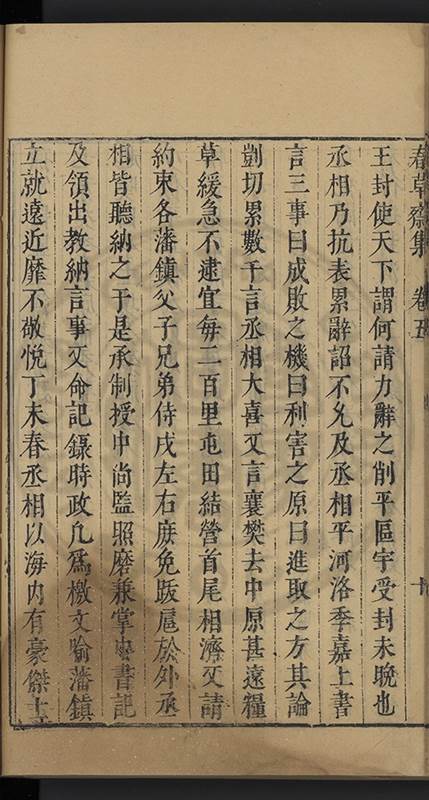 春草齋集 卷五
王封使天下謂何請力辭之削平區宇受封未晚也
丞相乃抗表累辭詔不允及丞相平河洛季嘉上書
言三事曰成敗之機曰利害之原曰進取之方其論
剴切累數千言丞相大喜又言襄樊去中原甚遠糧
草緩急不逮宜每二百里屯田結營首尾相濟又請
約束各藩鎮父子兄弟侍戌左右庶免跋扈於外丞
相皆聽納之于是承制授中尚監照磨兼掌書記
及領出教納言事又命記錄時政凡爲檄文喻藩鎮
立就遠近靡不敬悅丁未春丞相以海內有豪傑士